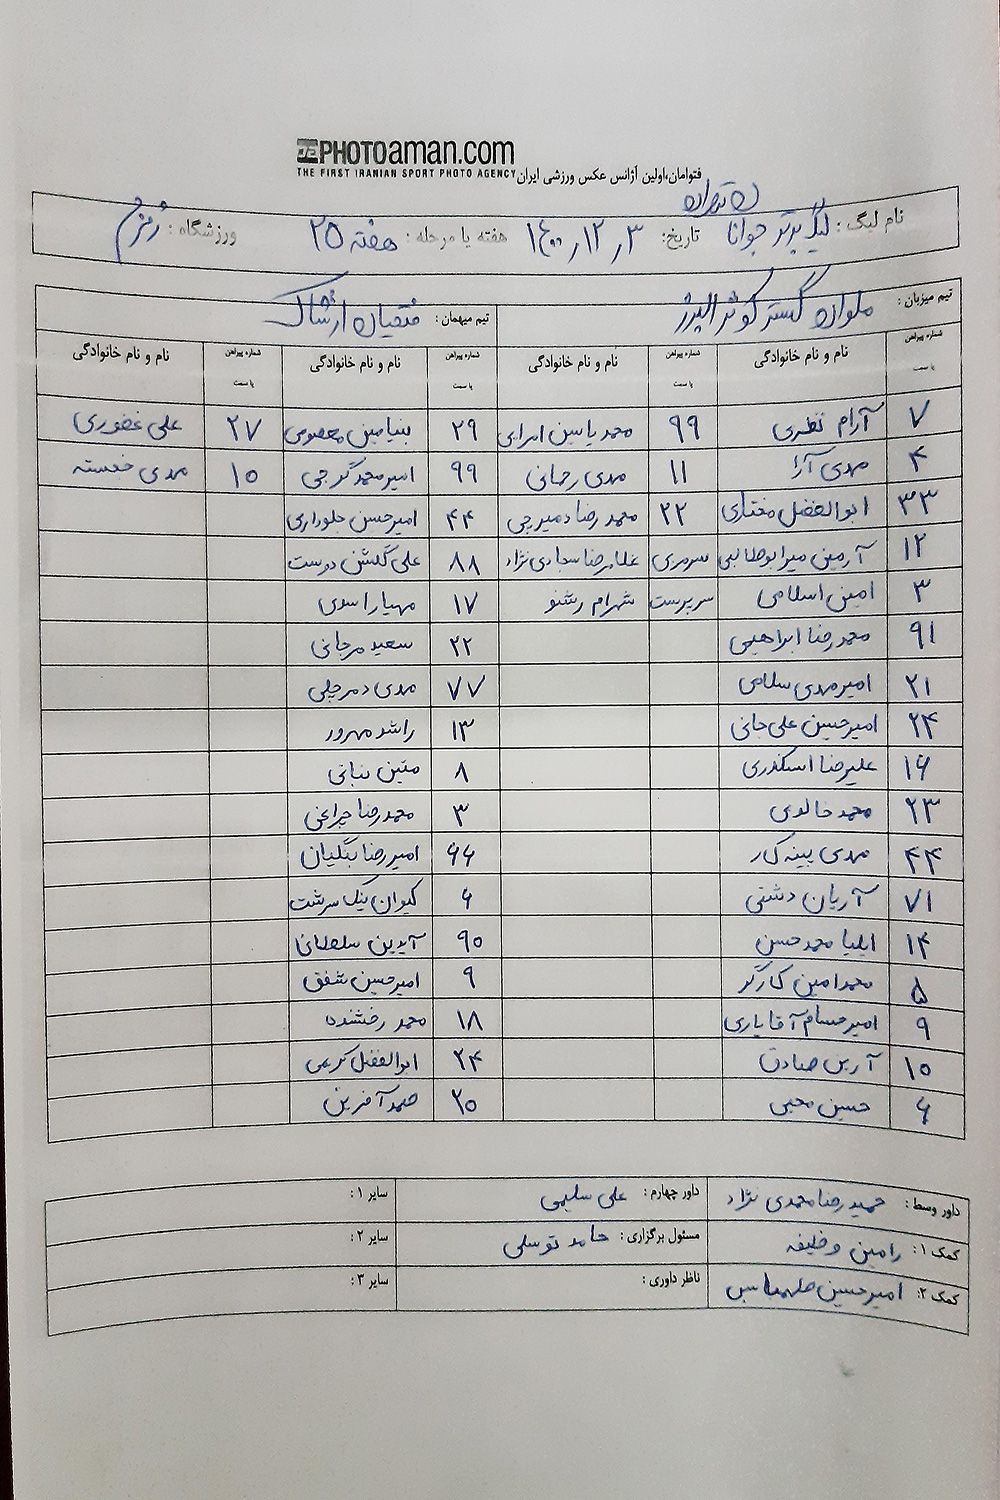 PHOTOaman.com
THE FIRST IRANIAN SPORT PHOTO AGENCY فتوامان،اولین آژانس عکس ورزشی ایران
نام لیگ : لیگ برتر جوانان تهران تاریخ: ۳ر۱۲ر۱۴۰۰ هفته یا مرحله : هفته ۲۵ ورزشگاه : زمزم
تیم میزبان : ملوان گستر کوثر البرز تیم میهمان : متقیان ارشاک
شماره پیراهن یا سمت نام و نام خانوادگی شماره پیراهن یا سمت نام و نام خانوادگی شماره پیراهن یا سمت نام و نام خانوادگی شماره پیراهن یا سمت نام و نام خانوادگی
۷ آرام نظری ۹۹ محمد یاسین امرایی ۲۹ بنیامین معصومی ۲۷ علی غفوری
۴ مهدی آرا ۱۱ مهدی رحمانی ۹۹ امیرمحمد گرجی ۱۰ مهدی خجسته
۳۳ ابوالفضل مختاری ۲۲ محمد رضا دمیرچی ۴۴ امیرحسن جلوداری
۱۲ آرمین میرابوطالبی سرمربی غلامرضا سجادی نژاد ۸۸ علی گلشن دوست
۳ امین اسلامی سرپرست شهرام رشنو ۱۷ مهیار اسدی
۹۱ محمدرضا ابراهیمی ۲۲ سعید مرجانی
۲۱ امیرمهدی سلامی ۷۷ مهدی دمرچلی
۲۴ امیرحسین علی جانی ۱۳ راشد مهرور
۱۶ علیرضا اسکندری ۸ متین بنانی
۲۳ محمد خالوی ۳ محمدرضا چراغی
۴۴ مهدی پینه کار ۶۶ امیررضا بنگلیان
۷۱ آریان دشتی ۶ کیوان نیک سرشت
۱۴ ایلیا محمدحسن ۹۰ آیدین سلطانا
۵ محمدامین کارگر ۹ امیرحسین شفق
۹ امیرحسام آقایاری ۱۸ محمد رخشنده
۱۰ آرین صادق ۲۴ ابوالفضل کریمی
۶ حسین محبی ۲۰ صمد آفرین
داور وسط : حمیدرضا محمدی نژاد داور چهارم : علی سلیمی سایر ۱ :
کمک ۱ : رامین وظیفه مسئول برگزاری : حامد توسلی سایر ۲ :
کمک ۲: امیرحسین ناظر داوری : سایر ۳ :